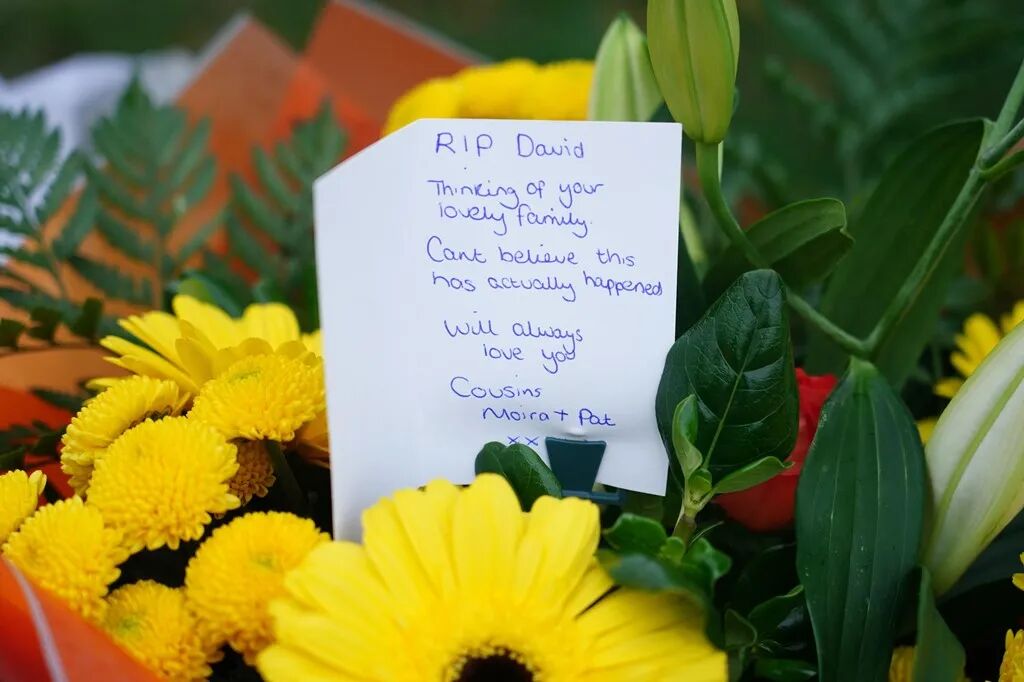 RIP David
Thinking of your
lovely family.
Cant believe this
has actually happened
Will always
love you
Cousins
Moira + Pat
xx